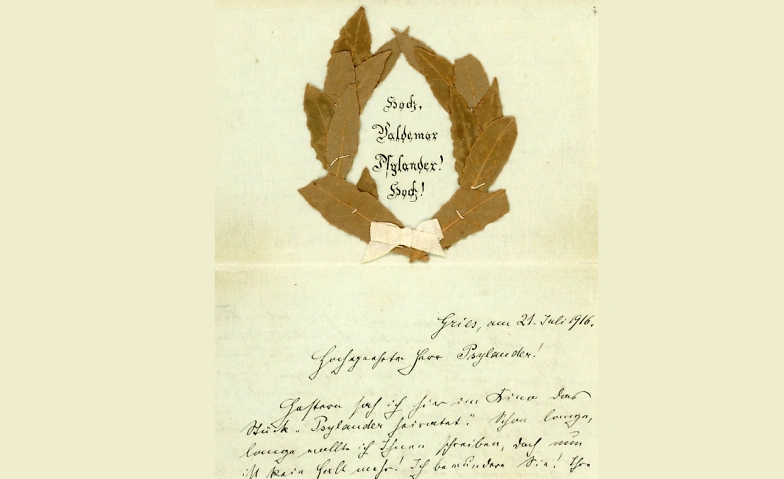 Hoch,
Valdemar
Psylander!
Hoch!
Gries, am 21. Juli 1916.
Hochgeehrter Herr Psylander!
Gestern sah ich hier im Kino das
Stück „Psylander heiratet". Schon lange,
lange wollte ich Ihnen schreiben, doch nun
ist kein Halt mehr! Ich bewundere Sie! Ihre